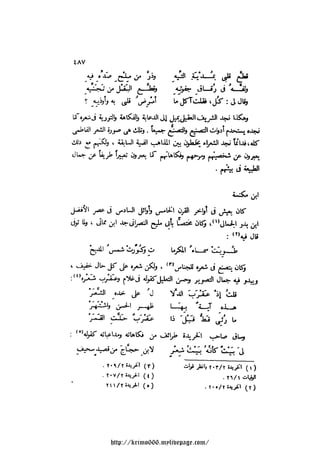 ٤٨٧
قطّع قلبي بمُـــدْيَة التِّيــهِ وذرَّ من مِلْحِ صَدِّهِ فيهِ
ولفَّــهُ في رُقــاق جفوتِه وقطَّــع البَقْــلَ من تجنّيـهِ
وقال لي : كلْ، فقلت آكل ما أمْرضَ قلبي به وأوذيهِ ؟
وهكذا نجد الشريف العقيلي يميل إلى الدعابة والفكاهة والتورية في شعره كما
نجده يستخدم أدوات التصنيع والتصنُّع جميعاً . وتلك هي صورة الشعر الفاطمي
كله، فدائماً نجد الشعراء يخلطون بين المذاهب الفنية السابقة ، ولكنهم مع ذلك
يعبرون عن شخصيتهم ومرحهم وفكاهاتهم كما يعبرون تعبيراً طريفاً عن جمال
الطبيعة في بيئتهم .
ابن مكنسة
كان يعيش في أواخر القرن الخامس وأوائل السادس في عصر الأفضل
ابن بدر الجمالي(١)، وكان مختصًّا بأبي مليح النصراني جد ابن مماتي ، ولما توفى
قال فيه(٢) :
طُــويتْ سماءُ المكرما تِ وكُوِّرتْ شمسُ المديحْ
وكان يتصنع في شعره للجناس(٣) ، ولكن شعره على كل حال خفيف ،
ويبدو فيه جمال التصوير وحسن التعليل كقوله في غلام وعقرب شعره(٤):
قلتُ إذْ عقْرَبَ الدلا لُ على خده الشَّعَرْ
هــذه آيــةٌ بهــا ظهــر الحسن واشتهرْ
ما رُئِي قطُّ قبل ذا عقربٌ حلّت القمرْ
وساق صاحب الخريدة طرائف من فكاهاته ومداعباته كقوله(٥) :
ليَ بيتٌ كأنَّه بيتُ شِعرٍ لابن حجّاج من قصيد سخيفِ
(١) الخريدة ٢/٢٠٣ وانظر فوات
الوفيات ١/ ٢٦ .
(٢) الخريدة ٢/ ٢٠٥ .
(٣) الخريدة ٢/ ٢٠٩ .
(٤) الخريدة ٢/ ٢٠٧ .
(٥) الخريدة ٢/ ٢١١
http://krimo666.mylivepage.com/